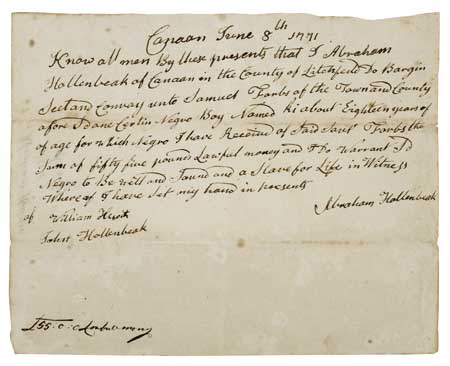 Canaan June 8th 1771
Know all men By these presents that I Abraham
Hollenbeak of Canaan in the County of Litchfield Do Bargin
Sel and Convay unto Samuel Forbs of the Town and County
afore Sd one Certin Negro Boy Named ki about Eighteen years of
of age for which Negro I have Receved of Said Forbs the
Sum of fifty five pounds Lawful money and I Do Warrant Sd
Negro to Be well and Sound and a Slave for Life in Witness
Whereof I have Set my hand in presents
of William
John Hollenbeak
Abraham Hollenbeak